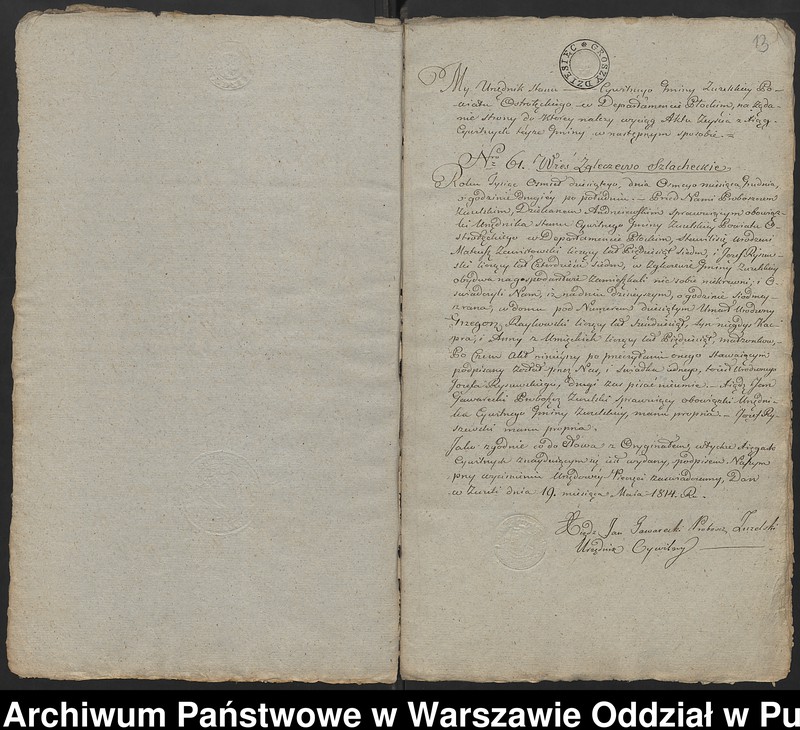 13
GROSZY DZIESIĘĆ
My Urzędnik Stanu Cywilnego Gminy Zuzelskiey Po-
wiatu Ostrołęckiego w Departamencie Płockim, na żąda-
nie strony do ktorey należy wyciąg Aktu Zeyścia z Xiąg
Cywilnych teyże Gminy w następnym sposobie. =
Nro 61. Wieś Zgleczewo Szlacheckie.
Roku Tysiąc Osmset dziesiątego, dnia Osmego miesiąca Grudnia,
o godzinie drugiey po południu. — Przed Nami Proboszczem
Zuzelskim, Dziekanem sprawuiącym obowiąz-
ki Urzędnika Stanu Cywilnego Gminy Zuzelskiey Powiatu O-
strołęckiego w Departamencie Płockim, Stawili się Urodzeni
Mateusz liczący lat Pięćdziesiąt Siedm, i Jozef Rysze-
wski liczący lat Czterdzieści Siedm, w Zgleczewie Gminy Zuzelskiey
obydwa na gospodarstwie zamieszkali nie sobie niekrewni; i O-
świadczyli Nam, iż na dniu dzisieyszym, o godzinie Siodmey
zrana, w domu pod Numerem dziesiątym Umarł Urodzony
Grzegorz liczący lat Sześćdziesiąt, syn niegdyś Kac-
pra, i Anny z liczący lat Pięćdziesiąt, małżonków,
Po Czem Akt ninieyszy po przeczytaniu onego Stawaiącym
podpisany został przez Nas, i świadka iednego, to iest Urodzonego
Jozefa Ryszewskiego, drugi zaś pisać nieumie. — Xiądz Jan
Gawarecki Proboszcz Zuzelski sprawuiący obowiązki Urzędni-
ka Cywilnego Gminy Zuzelskiey, manu propria. — Jozef Ry-
szewski manu propria.
Jako zgodnie co do Słowa z Oryginałem, w tychże Xięgach
Cywilnych znayduiącym się iest wydany, podpisem Naszym
przy wyciśnieniu Urzędowey Pieczęci zaświadczamy, Dan
w Zuzeli dnia 19. miesiąca Maia 1814. R.
Xiądz Jan Gawarecki Proboszcz Zuzelski
Urzędnik Cywilny
Archiwum Państwowe w Warszawie Oddział w Pu